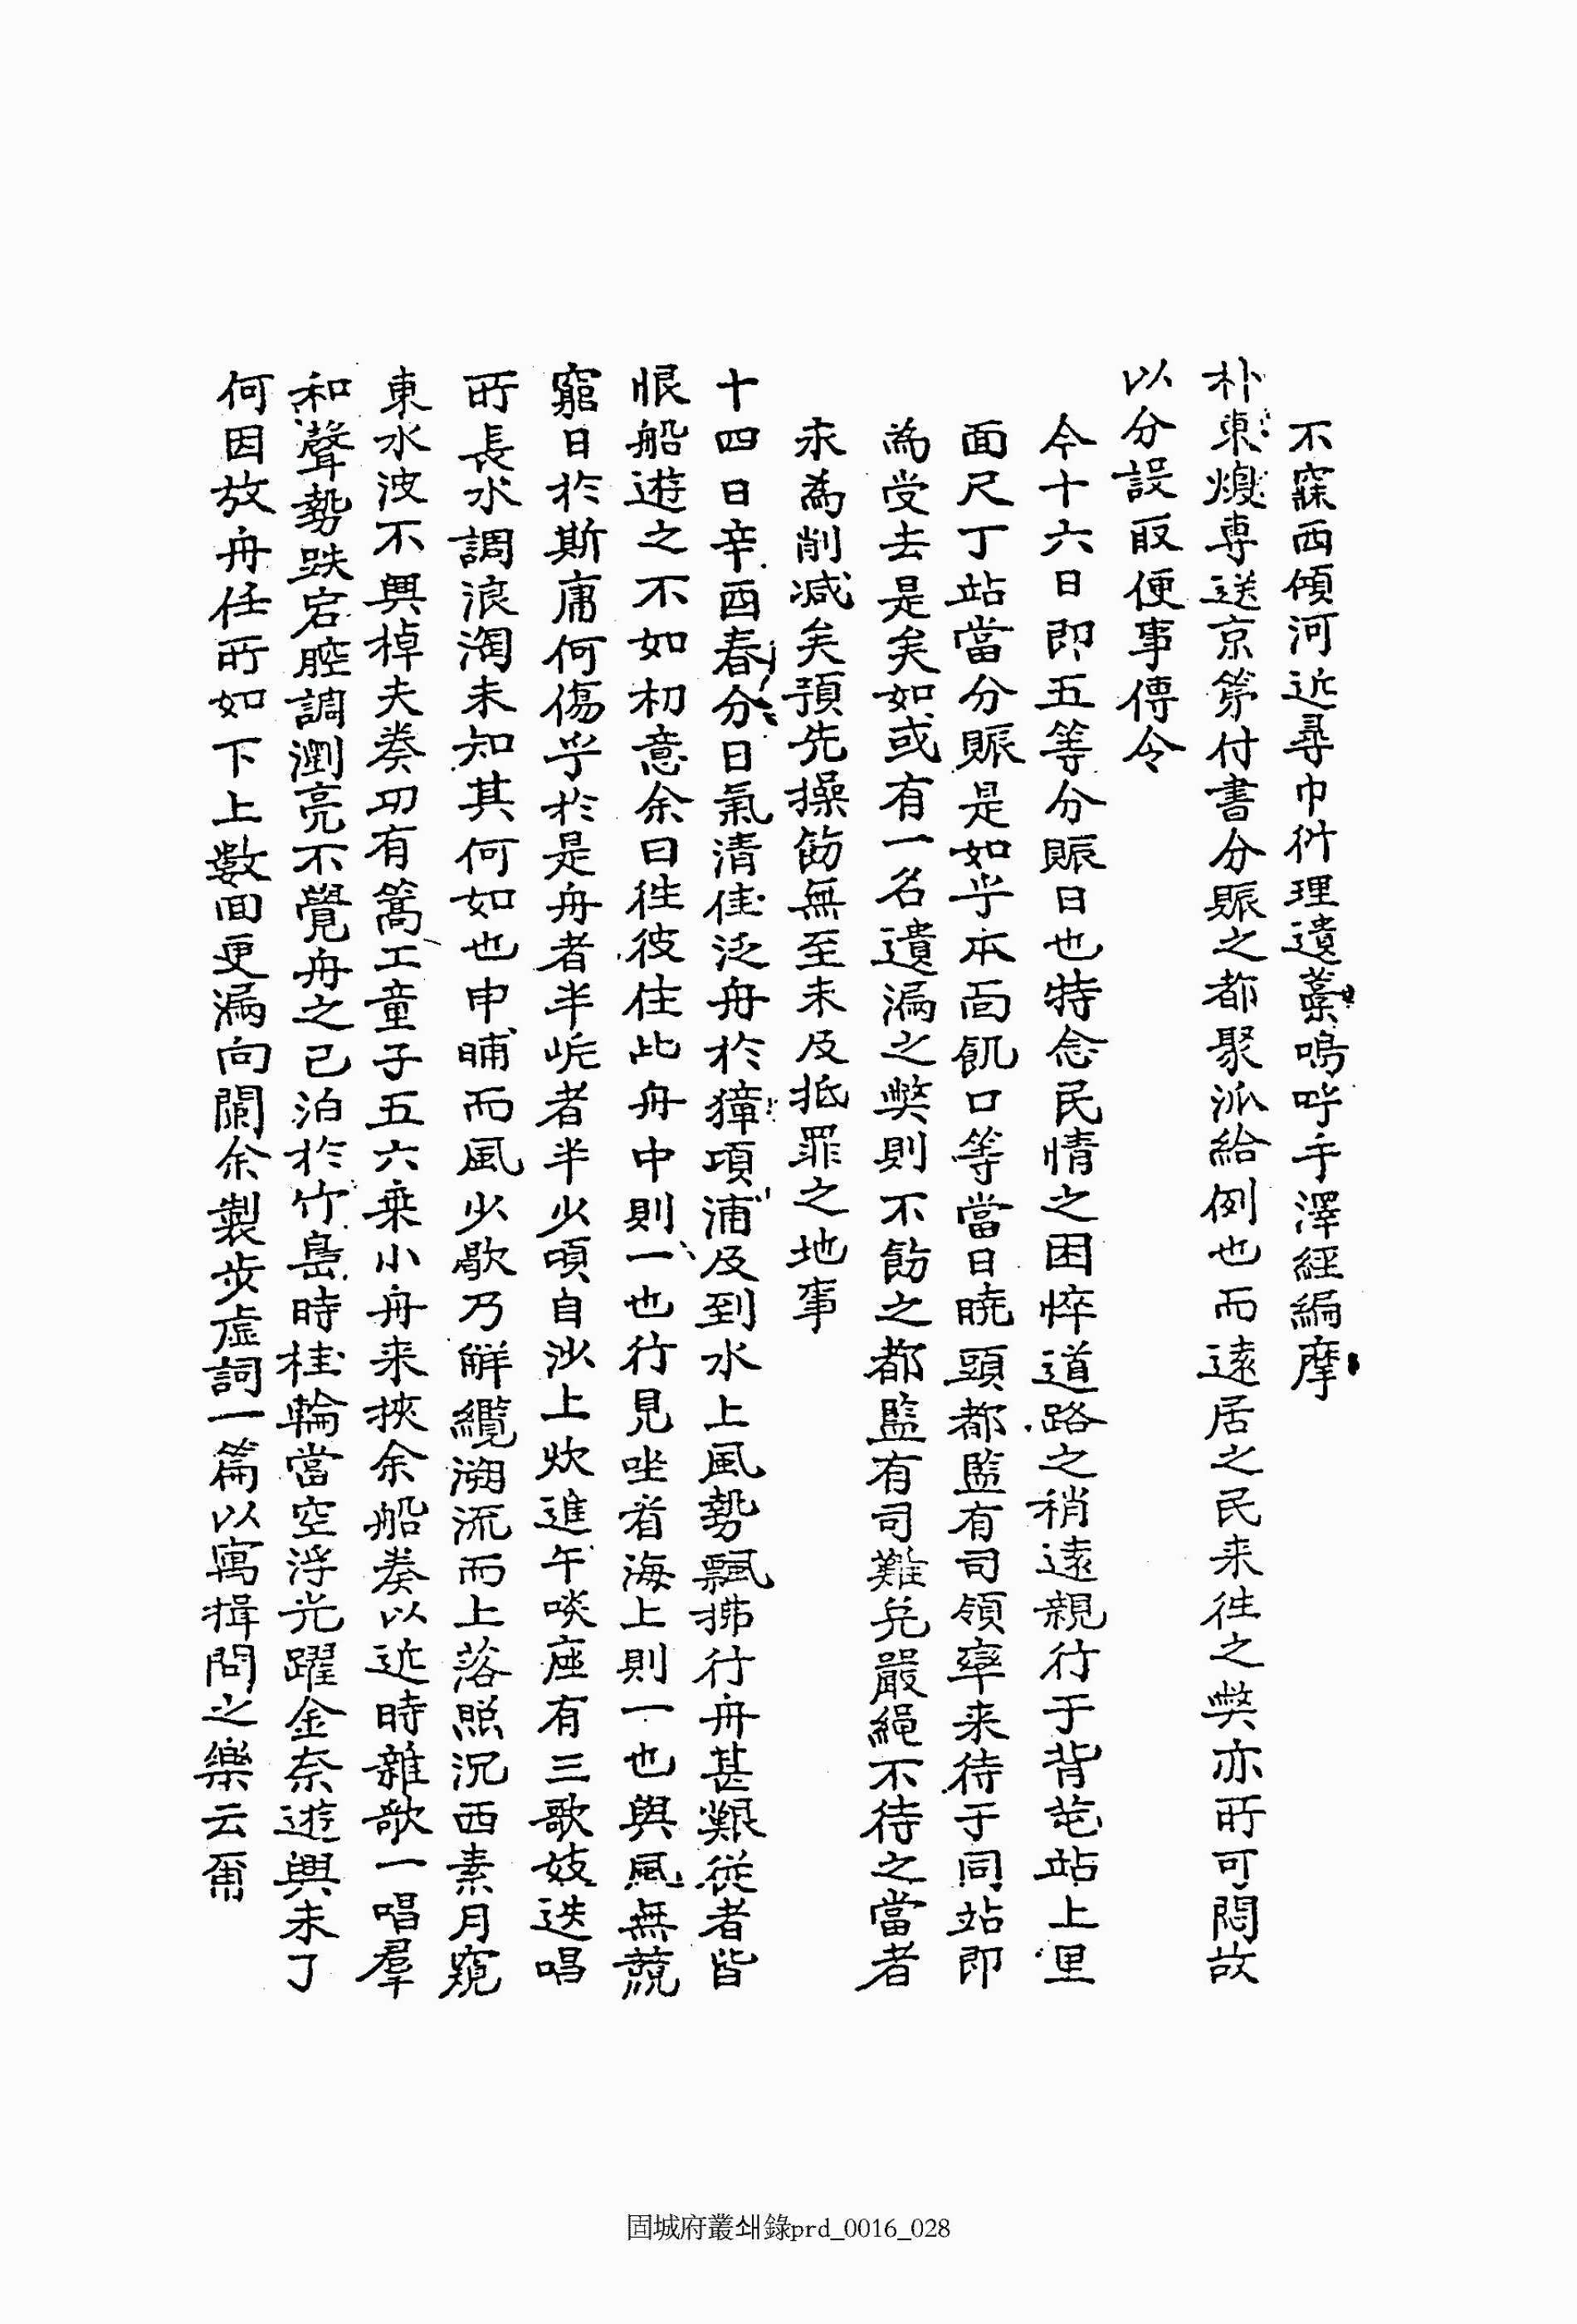 不寐西傾河近尋巾衍理遺藁嗚呼手澤經編摩
朴東煥專送京第付書分賑之都聚派給例也而遠居之民来徃之獘亦所可悶故
以分設取便事傳令
今十六日即五等分賑日也特念民情之困悴道路之稍遠親行于背屯站上里
面尺丁站當分賑是如乎本面飢口等當日曉頭都監有司領率来待于同站即
為受去是矣如或有一名遺漏之獘則不飭之都監有司難免嚴繩不待之當者
永為削減矣預先操飭無至未及抵罪之地事
十四日辛酉春分日氣清佳泛舟於獐項浦及到水上風勢飄拂行舟甚艱從者皆
恨船遊之不如初意余曰徃彼住此舟中則一也行見坐看海上則一也與風無競
窮日於斯庸何傷乎於是舟者半岸者半少頃自沙上炊進午啖座有三歌妓迭唱
所長水調浪淘未知其何如也申晡而風少歇乃解纜溯流而上落照沉西素月窺
東水波不興棹夫奏功有篙工童子五六乗小舟来挾余船奏以近時雜歌一唱羣
和聲勢跌宕腔調瀏亮不覺舟之已泊於竹島時桂輪當空浮光躍金奈遊興未了
何因放舟任所如下上數回更漏向闌余製步虛詞一篇以寓揖問之樂云爾
固城府叢쇄錄prd_0016_028